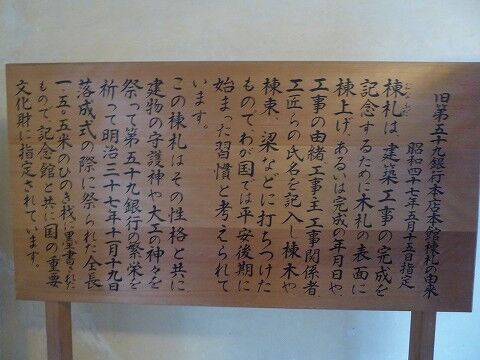 旧第五十九銀行本店本館棟札の由来
昭和四十七年五月十五日指定
棟札は、建築工事の完成を
記念するために木札の表面に
棟上げ、あるいは完成の年月日や、
工事の由緒・工事主・工事関係者
工匠らの氏名を記入し棟木や
棟束、梁などに打ちつけた
もので、わが国では平安後期に
始まった習慣と考えられて
います。
この棟札はその性格と共に
建物の守護神や大工の神々を
祭って第五十九銀行の繁栄を
祈って明治三十七年十一月十九日
落成式の際に祭られた全長
一・五〇五米のひのき板に墨書された
もので、記念館と共に国の重要
文化財に指定されています。